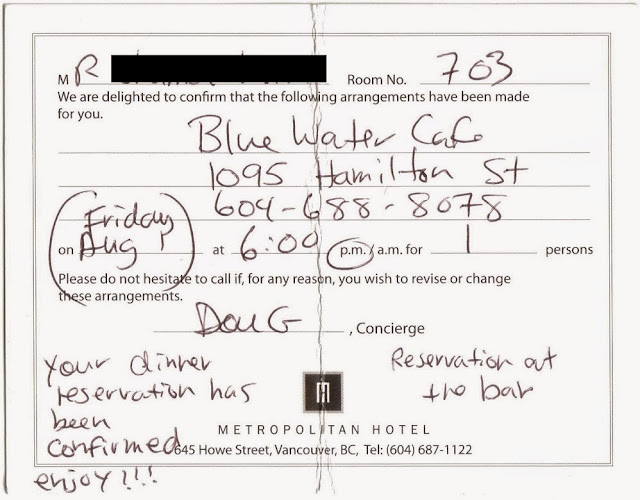 MR Room No. 703
We are delighted to confirm that the following arrangements have been made
for you.
Blue Water Cafe
1095 Hamilton St
604-688-8078
on Friday Aug 1 at 6:00 p.m./a.m. for 1 persons
Please do not hesitate to call if, for any reason, you wish to revise or change
these arrangements.
Doug, Concierge
your dinner
reservation has
been
confirmed
enjoy!!!
Reservation at
the bar
H
METROPOLITAN HOTEL
645 Howe Street, Vancouver, BC, Tel: (604) 687-1122